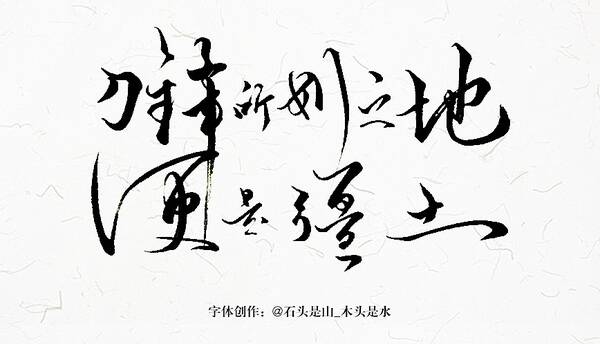 刀锋所划之地
便是疆土
字体创作：@石头是山_木头是水